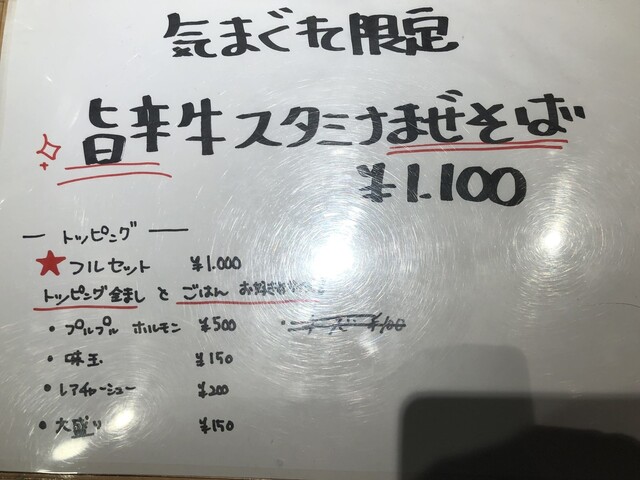 気まぐれ限定
旨辛牛スタミナまぜそば
¥1.100
トッピング
★ フルセット ¥1.000
トッピング全まし と ごはん お好き
・プルプル ホルモン ¥500
¥100
・味玉 ¥150
・レアチャーシュー ¥200
・大盛り ¥150